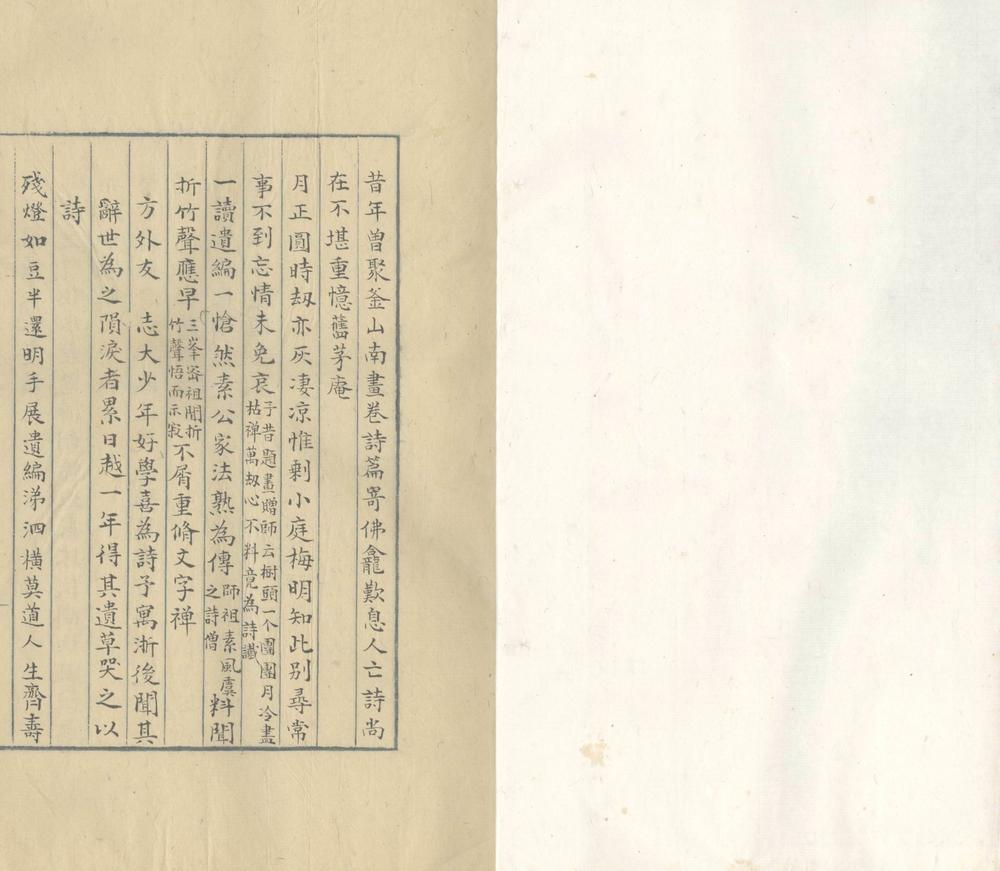 昔年曾聚釜山南畫卷詩篇寄佛龕歎息人亡詩尚
在不堪重憶舊茅庵
月正圓時刼亦灰凄涼惟剩小庭梅明知此别尋常
事不到忘情未免哀子昔題畫贈師云樹頭一个團團月冷盡枯禅萬刼心不料竟為詩讖
一讀遺編一愴然素公家法熟為傳師祖素風虞之詩僧料聞
折竹聲應早三峯宻祖聞折竹聲悟而示寂不屑重脩文字禅
方外友　志大少年好學喜為詩予寓浙後聞其
辭世為之隕淚者累日越一年得其遺草哭之以
詩
殘燈如豆半還明手展遺編涕泗橫莫道人生齊壽